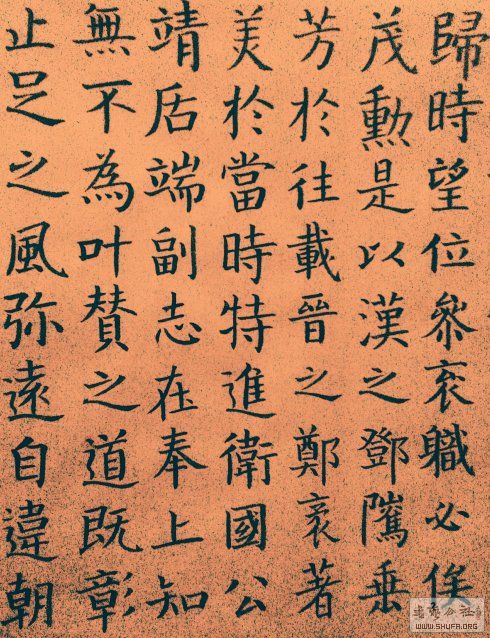 歸時望位叅衮職必俟
茂勳是以漢之鄧隲垂
芳於往載晉之鄭袤著
美於當時特進衛國公
靖居端副志在奉上知
無不為叶賛之道既彰
止足之風弥遠自違朝
WWW.SHUFA.ORG